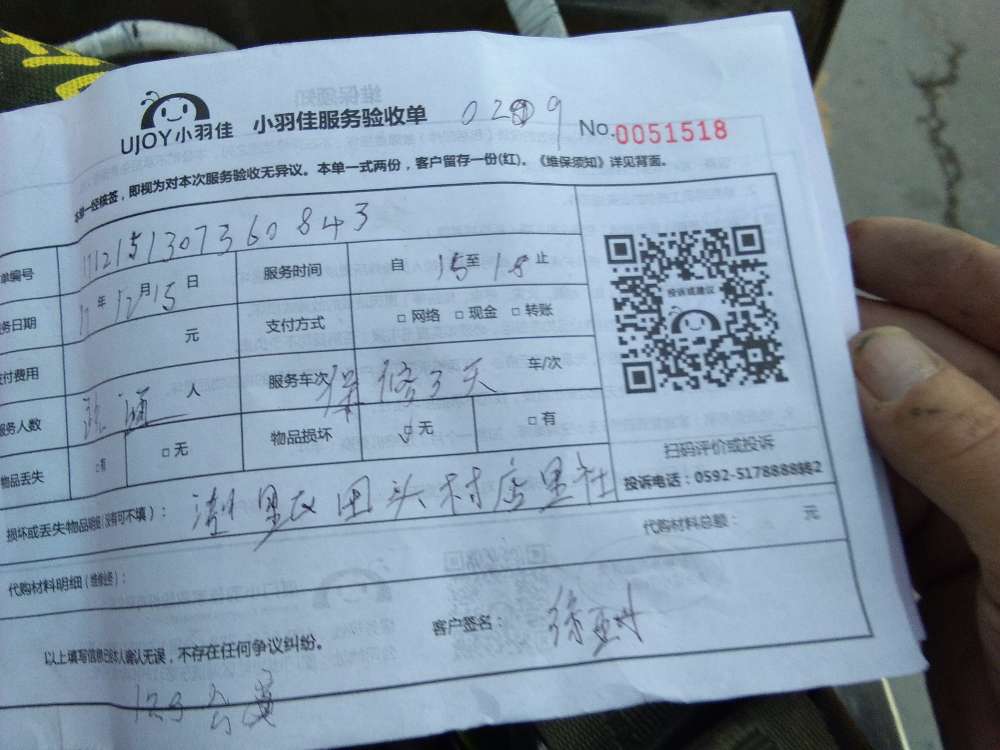 UJOY小羽佳 小羽佳服务验收单 No.0051518
本单一经核签，即视为对本次服务验收无异议。本单一式两份，客户留存一份(红)。《维保须知》详见背面。
单编号 171215130736 0843
务日期 17年12月15日 服务时间 自15至18止
付费用 元 支付方式 □网络 □现金 □转账
服务人数 人 服务车次 保修3天 车/次
物品丢失 □有 □无 物品损坏 □无 □有
投诉或建议
扫码评价或投诉
投诉电话：0592-5178888转2
损坏或丢失物品明细(没有可不填)： 田头村店里社
代购材料明细(维修)： 代购材料总额： 元
以上填写信息已经本人确认无误，不存在任何争议纠纷。 客户签名：
123公里